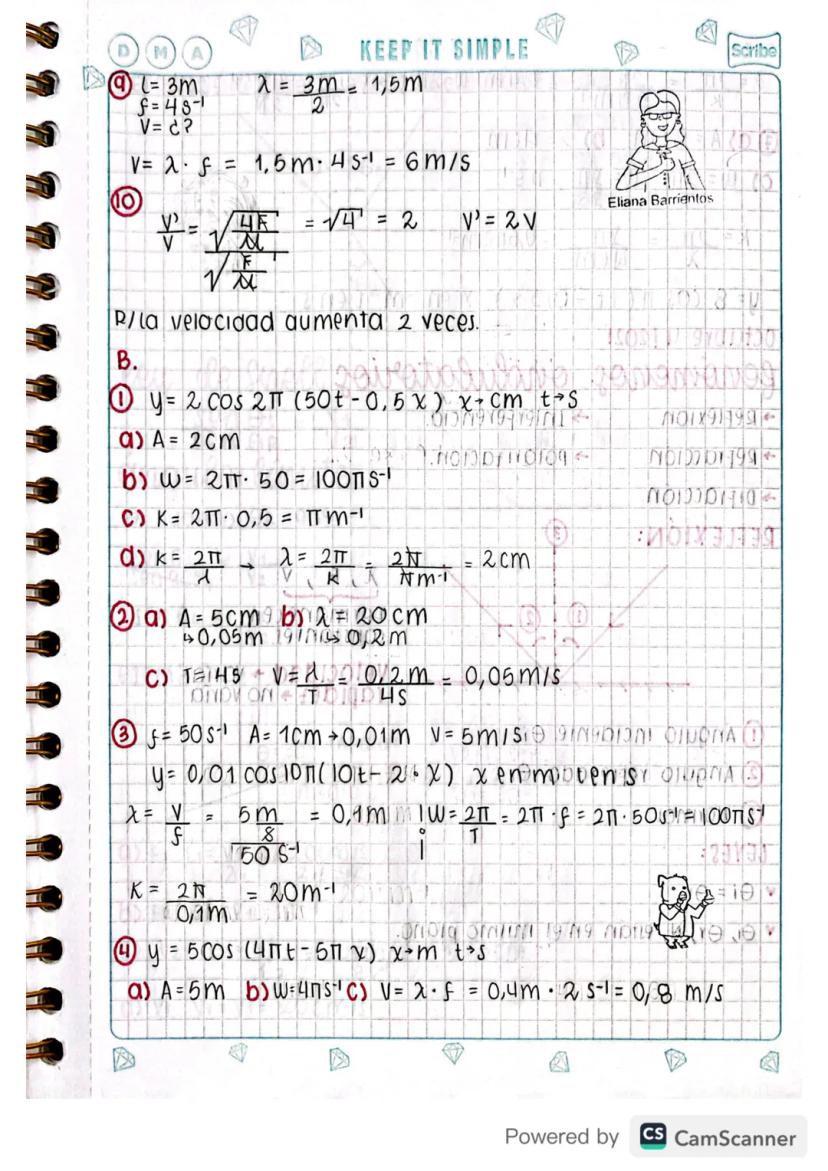 D M A KEEP IT SIMPLE Scribe
9 l= 3m λ = 3m/2 = 1,5m
f = 4 s⁻¹
V= ¿?
V= λ · f = 1,5m · 4 s⁻¹ = 6 m/s
Eliana Barrientos
10
V'/V = √(4F/μ) / √(F/μ) = √4 = 2 V' = 2V
R/la velocidad aumenta 2 veces.
B.
1 y= 2 cos 2π (50t - 0,5 x) x→cm t→s
a) A= 2cm
b) W= 2π · 50 = 100π s⁻¹
c) K= 2π · 0,5 = π m⁻¹
d) K= 2π/λ → λ = 2π/K = 2π/π m⁻¹ = 2cm
2 a) A= 5cm b) λ = 20cm
↳ 0,05m ↳ 0,2m
c) T= 4s V= λ/T = 0,2m/4s = 0,05m/s
3 f= 50s⁻¹ A= 1cm → 0,01m V= 5m/s
y= 0,01 cos 10π (10t - 2 · x) x en m t en s
λ = V/f = 5m/s / 50 s⁻¹ = 0,1m W= 2π/T = 2π · f = 2π · 50s⁻¹ = 100π s⁻¹
K = 2π/0,1m = 20m⁻¹
4 y = 5cos (4πt - 5π x) x→m t→s
a) A= 5m b) W= 4π s⁻¹ c) V= λ · f = 0,4m · 2 s⁻¹ = 0,8 m/s
Powered by CS CamScanner